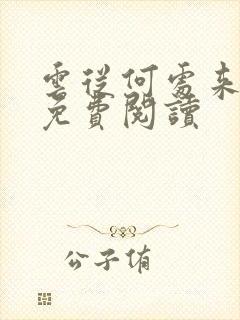 雲從何處來
免費閱讀
公子侑